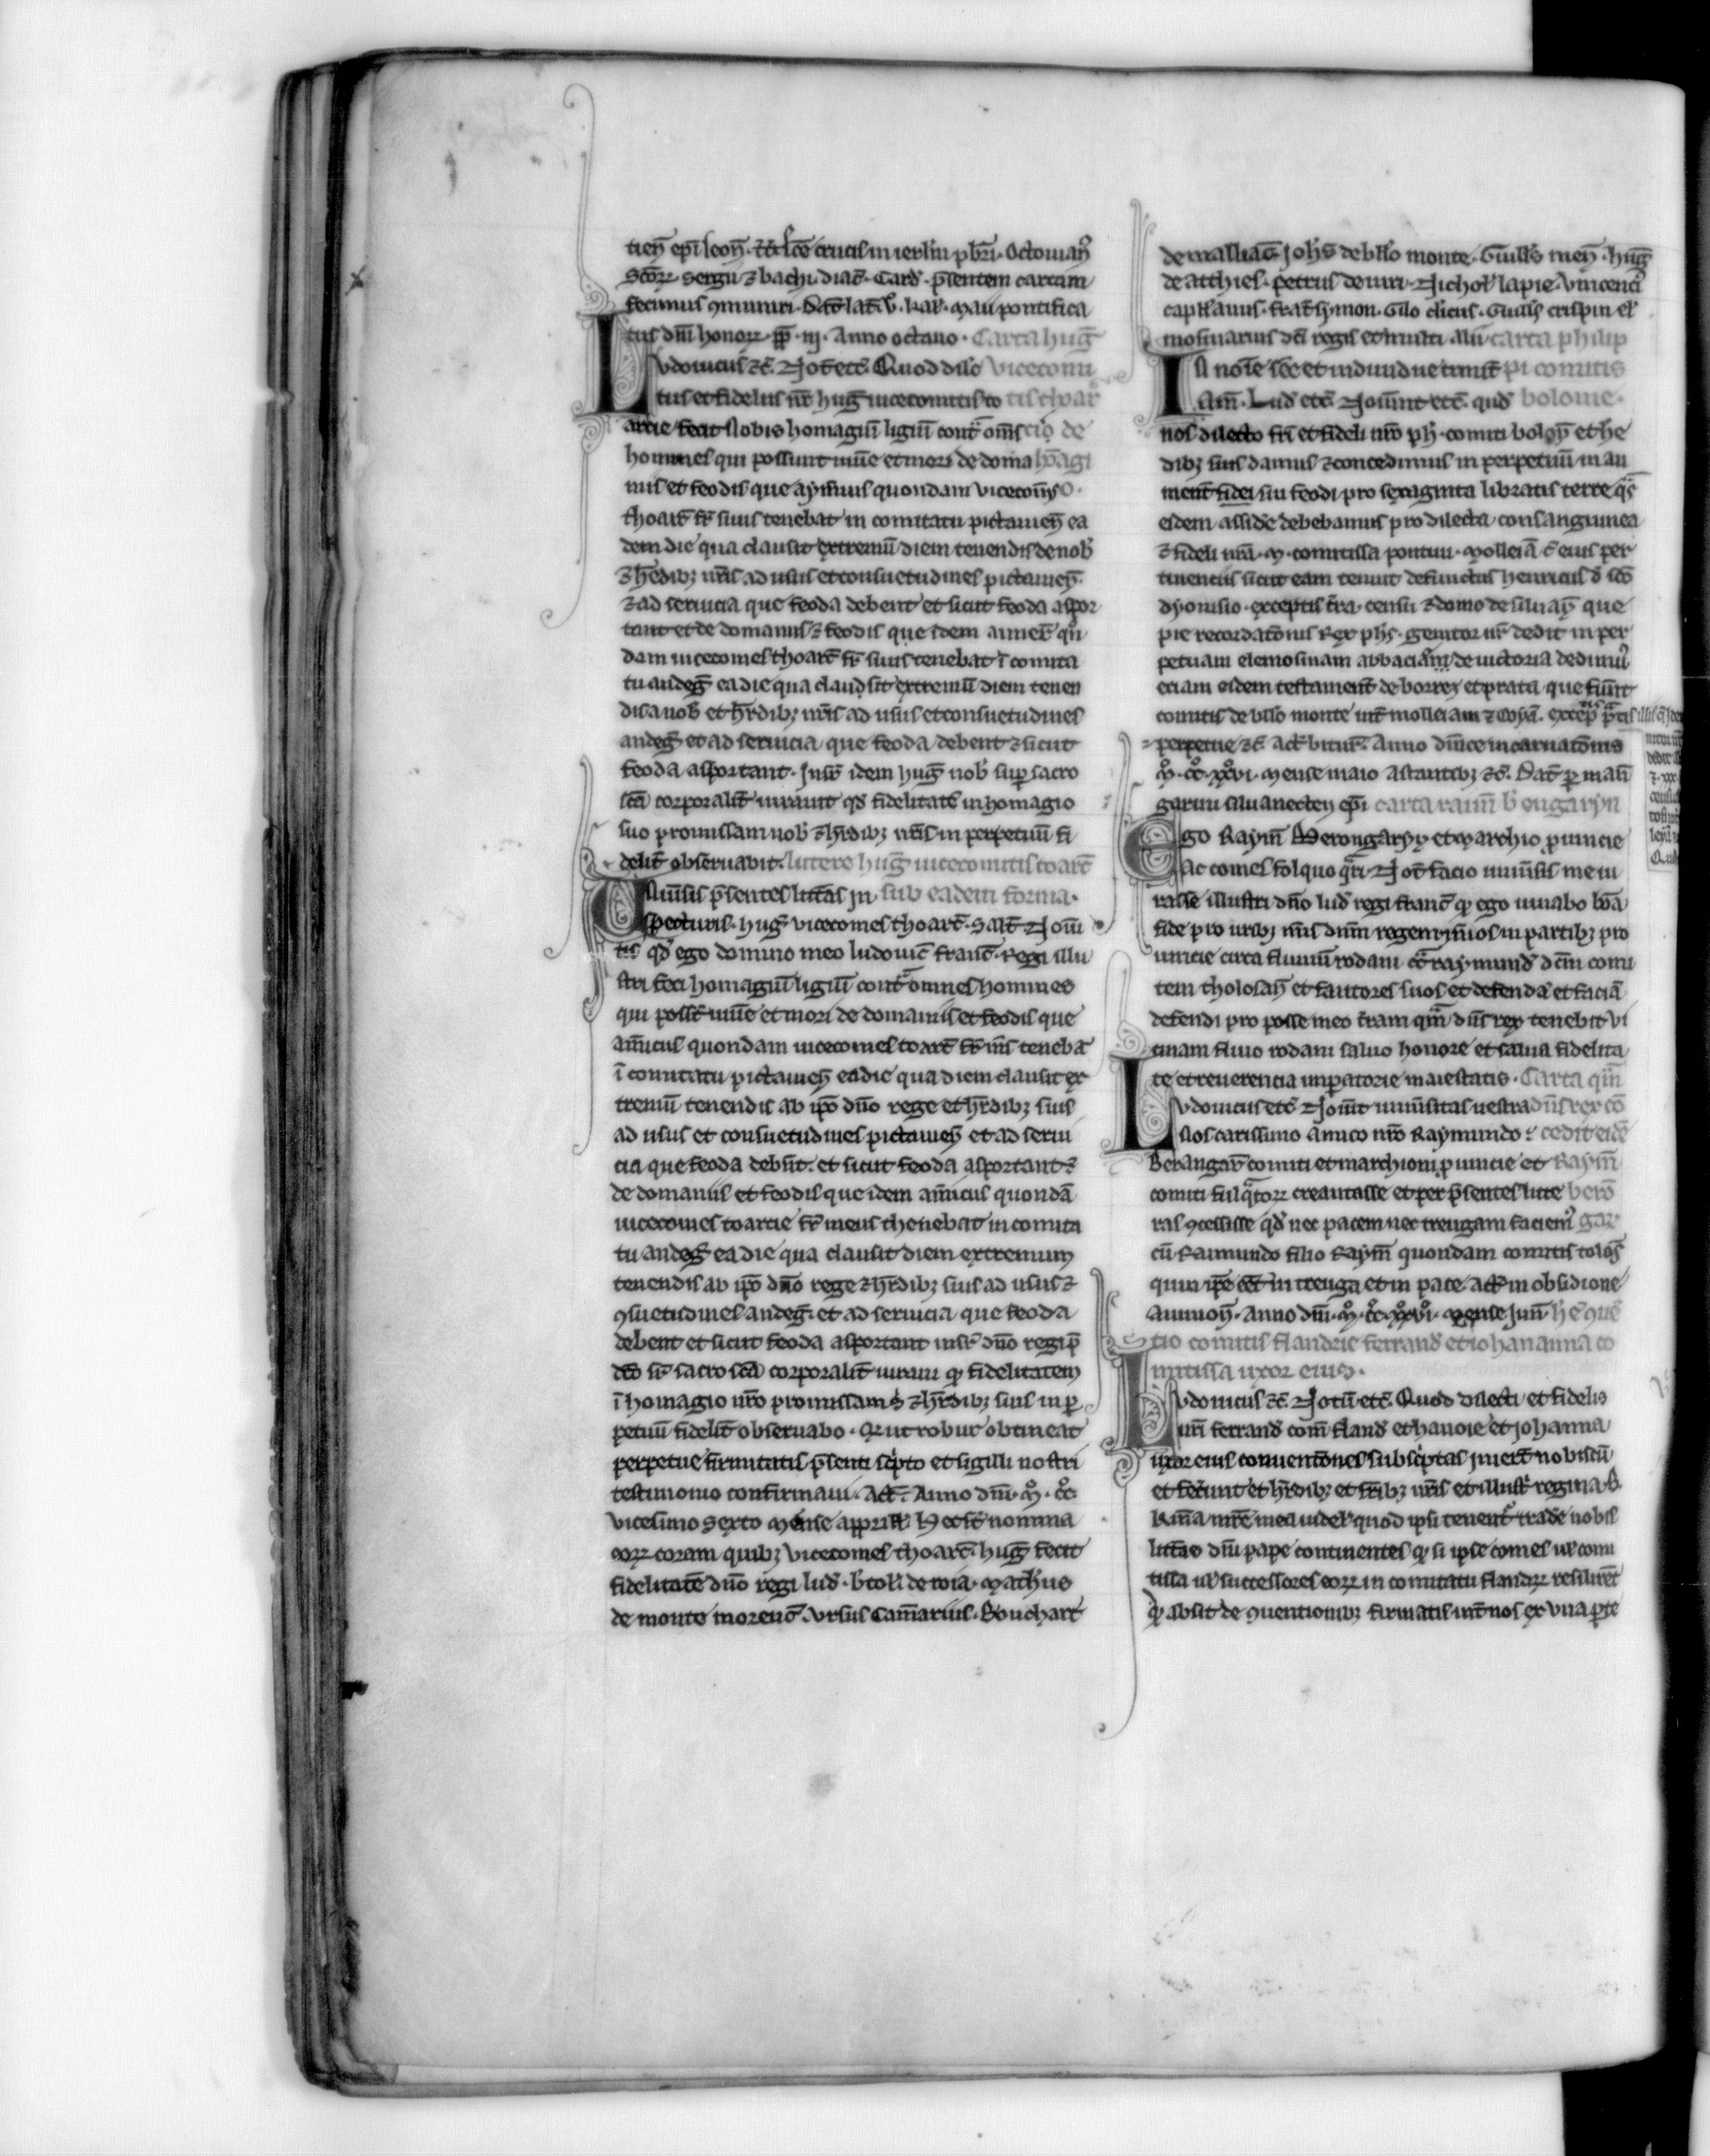 tieñ ep̃i leoñ. t̃t̃ sc̃e crucis in ierl̃m p̃bri. Octouian᷒
Sc̃orꝝ Sergii ⁊ bachi diac̃. Card̃. p̃sentem cartam
fecimus ꝯmuniri. Dat̃ lat̃. v̊. kal̃. Maii pontifica
tus dñi honorꝝ. pp̃. iij. Anno octauo. Carta hug̃
Ludouicus ⁊c̃. Not̃ etc̃. Quod dilc̃s vicecomi
tus et fidelis nr̃ hug̃ uicecomitis to tis thoar̃
arcie fecit Nobis homagiũ ligiũ cont̃ om̃s cio de
homines qui possunt uiu̾e et mori de doma hõagi
niis et feodis que aym̃icus quondam vicecom̃s o.
thoarc̃ fr̃ suus tenebat in comitatu pictauieñ ea
dem die qua clausit extremũ diem tenendis de nob̃
⁊ h̃edibꝫ nr̃is ad usus et consuetudines pictauieñ.
⁊ ad seruicia que feoda debent et sicut feoda aspor
tant et de domaniis ⁊ feodis que idem aimer̃ qñ
dam uicecomes thoarc̃ fr̃ suus tenebat ĩ comita
tu andeg̃ ea die qua claudsit extremũ diem tenen
dis a nob̃ et h̃rdibꝫ nr̃is ad usus et consuetudines
andeg̃ et ad seruicia que feoda debent ⁊ sicut
feoda asportant. Insup̃ idem hug̃ nob̃ sup̃ sacro
sc̃a corporalit̃ iurauit qd̃ fidelitatẽ in homagio
suo promissam nob̃ ⁊ h̃rdibꝫ nr̃is in perpetuũ fi
delit̃ obseruabit. littere hug̃ uicecomitis toarc̃
Vniu̾sis p̃sentes litt̃as in sub eadem forma.
specturis. hug̃ vicecomes thoarc̃. Salt̃. Nou̾i
tis qd̃ ego domino meo ludouic̃ franc̃. Regi illu
stri feci homagiũ ligiũ cont̃ omnes homines
qui poss̃t uiu̾e et mori de domaniis et feodis que
am̃icus quondam uicecomes toarc̃ fr̃ m̃s tenebã
ĩ comitatu pictauieñ ea die qua diem clausit ex
tremũ tenendis ab ip̃o dño rege et h̃rdibꝫ suis
ad usus et consuetudines pictauieñ et ad serui
cia que feoda debñt. et sicut feoda asportant. ⁊
de domaniis et feodis que idem am̃icus quondã
uicecomes toarcie fr̃ meus thenebat in comita
tu andeg̃ ea die qua clausit diem extremum
tenendis ab ip̃o dño rege ⁊ h̃rdibꝫ suis ad usus ⁊
ꝯsuetudines andeg̃. et ad seruicia que feoda
debent et sicut feoda asportant insup̃ dño regi p̃
dc̃o sup̃ sacro sc̃a corporalit̃ iuraui ꝙ fidelitatem
ĩ homagio nr̃o promissam ⁊ h̃rdibꝫ suis in ꝑ
petuũ fidelit̃ obseruabo. Qr̃ ut robur obtineat
perpetue firmitatis p̃senti sc̃pto et sigilli nostri
testimonio confirmaui. Act̃. Anno dñi. M̊. c̊c.
vicesimo sexto mense apprilis. Hec s̃t nomina
eorꝝ coram quibꝫ vicecomes thoarc̃. hug̃ fecit
fidelitatẽ dño regi lud̃. b̃tol̃ de roia. Math̃us
de monte morenc̃. Vrsus Cam̃arius. Bouchart
de malliac̃ Joh̃s de bll̃o monte. Guill̃s meñ. hug̃
de atthies. Petrus de uiri. Nichol̃ lapie. Vincenc̃
capll̃anus. Frat̃ symon. Gilo cl̃icus. Guill̃s crispin el̃
mosinarius dc̃i regis et multi alii carta philip
In noĩe sc̃e et indiuidue trinit̃ pi comitis
Am̃. Lud̃ etc̃. Nou̾int etc̃. qud̃ bolonie.
nos dilecto fr̃i et fideli nr̃o ph̃. comiti boloñ et he
dibꝫ suis damus ⁊ concedimus in perpetuũ in au
ment̃ fidei sui feodi pro sexaginta libratis terre q̃s
eidem assid̃e debebamus pro dilecta consanguinea
⁊ fideli nr̃a. M. comitissa pontiui. Molleiã c̃ eius per
tinentiis sicut eam tenuit defunctus henricus d̃ sc̃o
dyonisio. exceptis t̃ra. censu ⁊ domo de siluañ que
pie recordatõnis Rex ph̃s. genitor nr̃ dedit in per
petuam elemosinam abbaciam de uictoria dedim᷒
eciam eidem testament̃ de borrez et prata que fũnt
comitis de bll̃o monte int̃ molleiam ⁊ Coyã. excep̃t p̃tis illis q̃
perpetue ⁊c̃. Act̃ bitur̃. Anno dñice incarnatõnis
M̊. c̊c. xx̊vi. Mense maio Astantibꝫ ⁊c̃. Dat̃ ꝑ mañ
garini siluanecteñ ep̃i carta raim̃ b̃engaryn
Ego Raym̃ Berongaryy et marchio ꝓuincie
Ac comes folquoq̃ri. Not̃ facio uniu̾sis me iu
rasse illustri dño lud̃ regi franc̃ ꝙ ego iuuabo bõa
fide pro uiribꝫ m̃is dñm regem ip̃m os in partibꝫ pro
uincie circa fluuiũ rodani cõt̃ raymund̃ dc̃m comi
tem tholosañ et fautores suos et defendã et faciã
defendi pro posse meo t̃ram qm̃ dñs rex tenebit vi
cinam fluuio rodani saluo honore et salua fidelita
te et reuerencia imp̃atorie maiestatis. Carta qm̃
Ludouicus etc̃ Nou̾it uniu̾sitas uestra dñs rex cõ
Nos carissimo Amico nr̃o Raymundo cedit eidẽ
Berangar̃ comiti et marchioni ꝓuincie et Raym̃
comiti fulq̃torꝝ creantasse et per p̃sentes litte berõ
ras ꝯcessisse qd̃ nec pacem nec treugam faciem᷒ gar̃
cũ Raimundo filio Raym̃ quondam comitis tolos̃
quin ip̃e eet̃ in treuga et in pace Act̃ in obsidione
Auinioñ. Anno dñi. M̊. c̊c. xx̊vi. Mense Jun̄. h̃ ẽ ꝯuẽ
tio comitis flandrie ferrand̃ et iohananna co
mitissa uxor eius.
Ludouicus ⁊c̃. Notũ etc̃. Quod dilecti et fidelis
nr̃i ferrand̃ com̃ fland̃ et hanoie et Johanna
uxor eius conuentõnes subsc̃ptas inier̃t nobiscũ
et fec̃unt et h̃rdibꝫ et fr̃ibꝫ nr̃is et illustr̃ regina. B.
kr̃ima mr̃e mea uidel̃ quod ipsi tenent᷒ trad̃e nobis
litt̃as dñi pape continentes ꝙ si ipse comes ul̃ comi
tissa ul̃ successores eorꝝ in comitatu flandrꝝ resilirẽt
ꝙ absit de ꝯuentionibꝫ firmatis int̃ nos ex una ꝑte